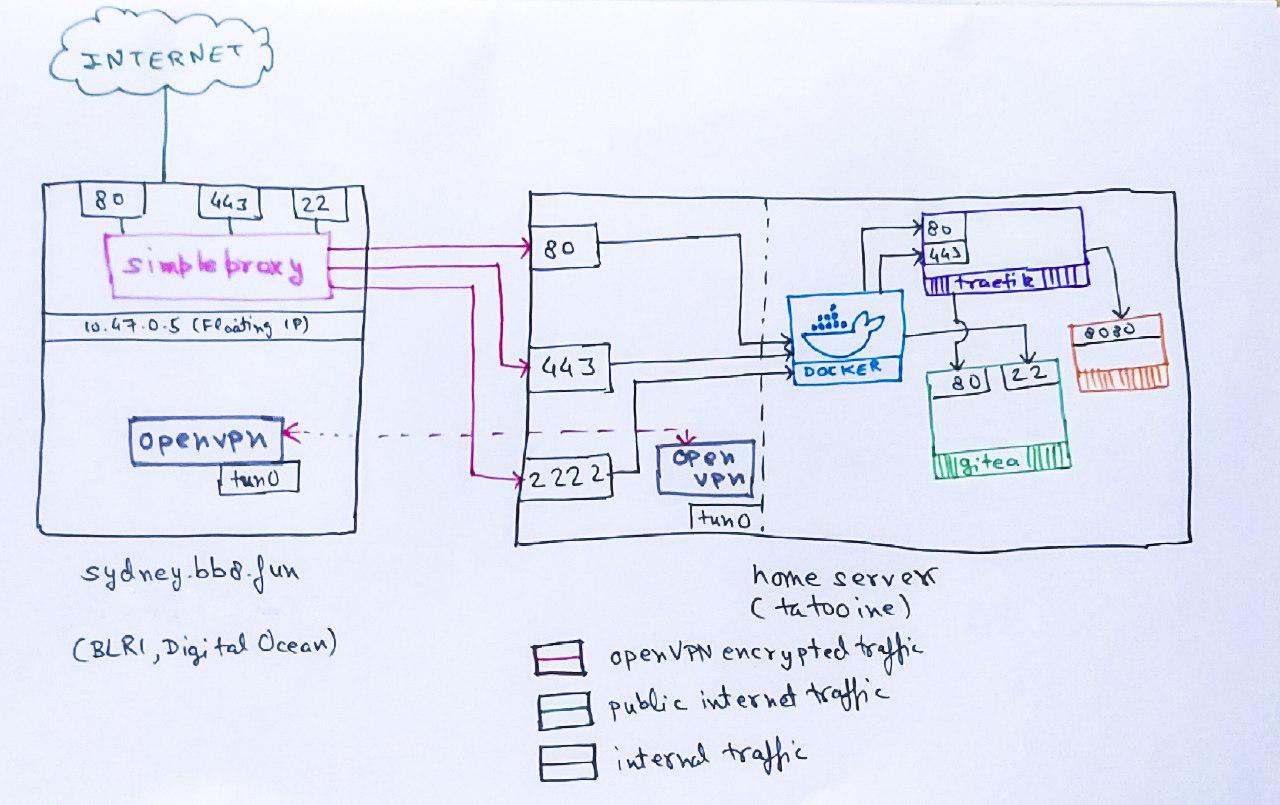 INTERNET
80
443
22
simpleproxy
10.47.0.5 (Floating IP)
openvpn
tun0
sydney.bb8.fun
(BLR1, Digital Ocean)
80
443
2222
open
vpn
tun0
DOCKER
80
443
traefik
8080
80
22
gitea
home server
(tatooine)
openVPN encrypted traffic
public internet traffic
internal traffic